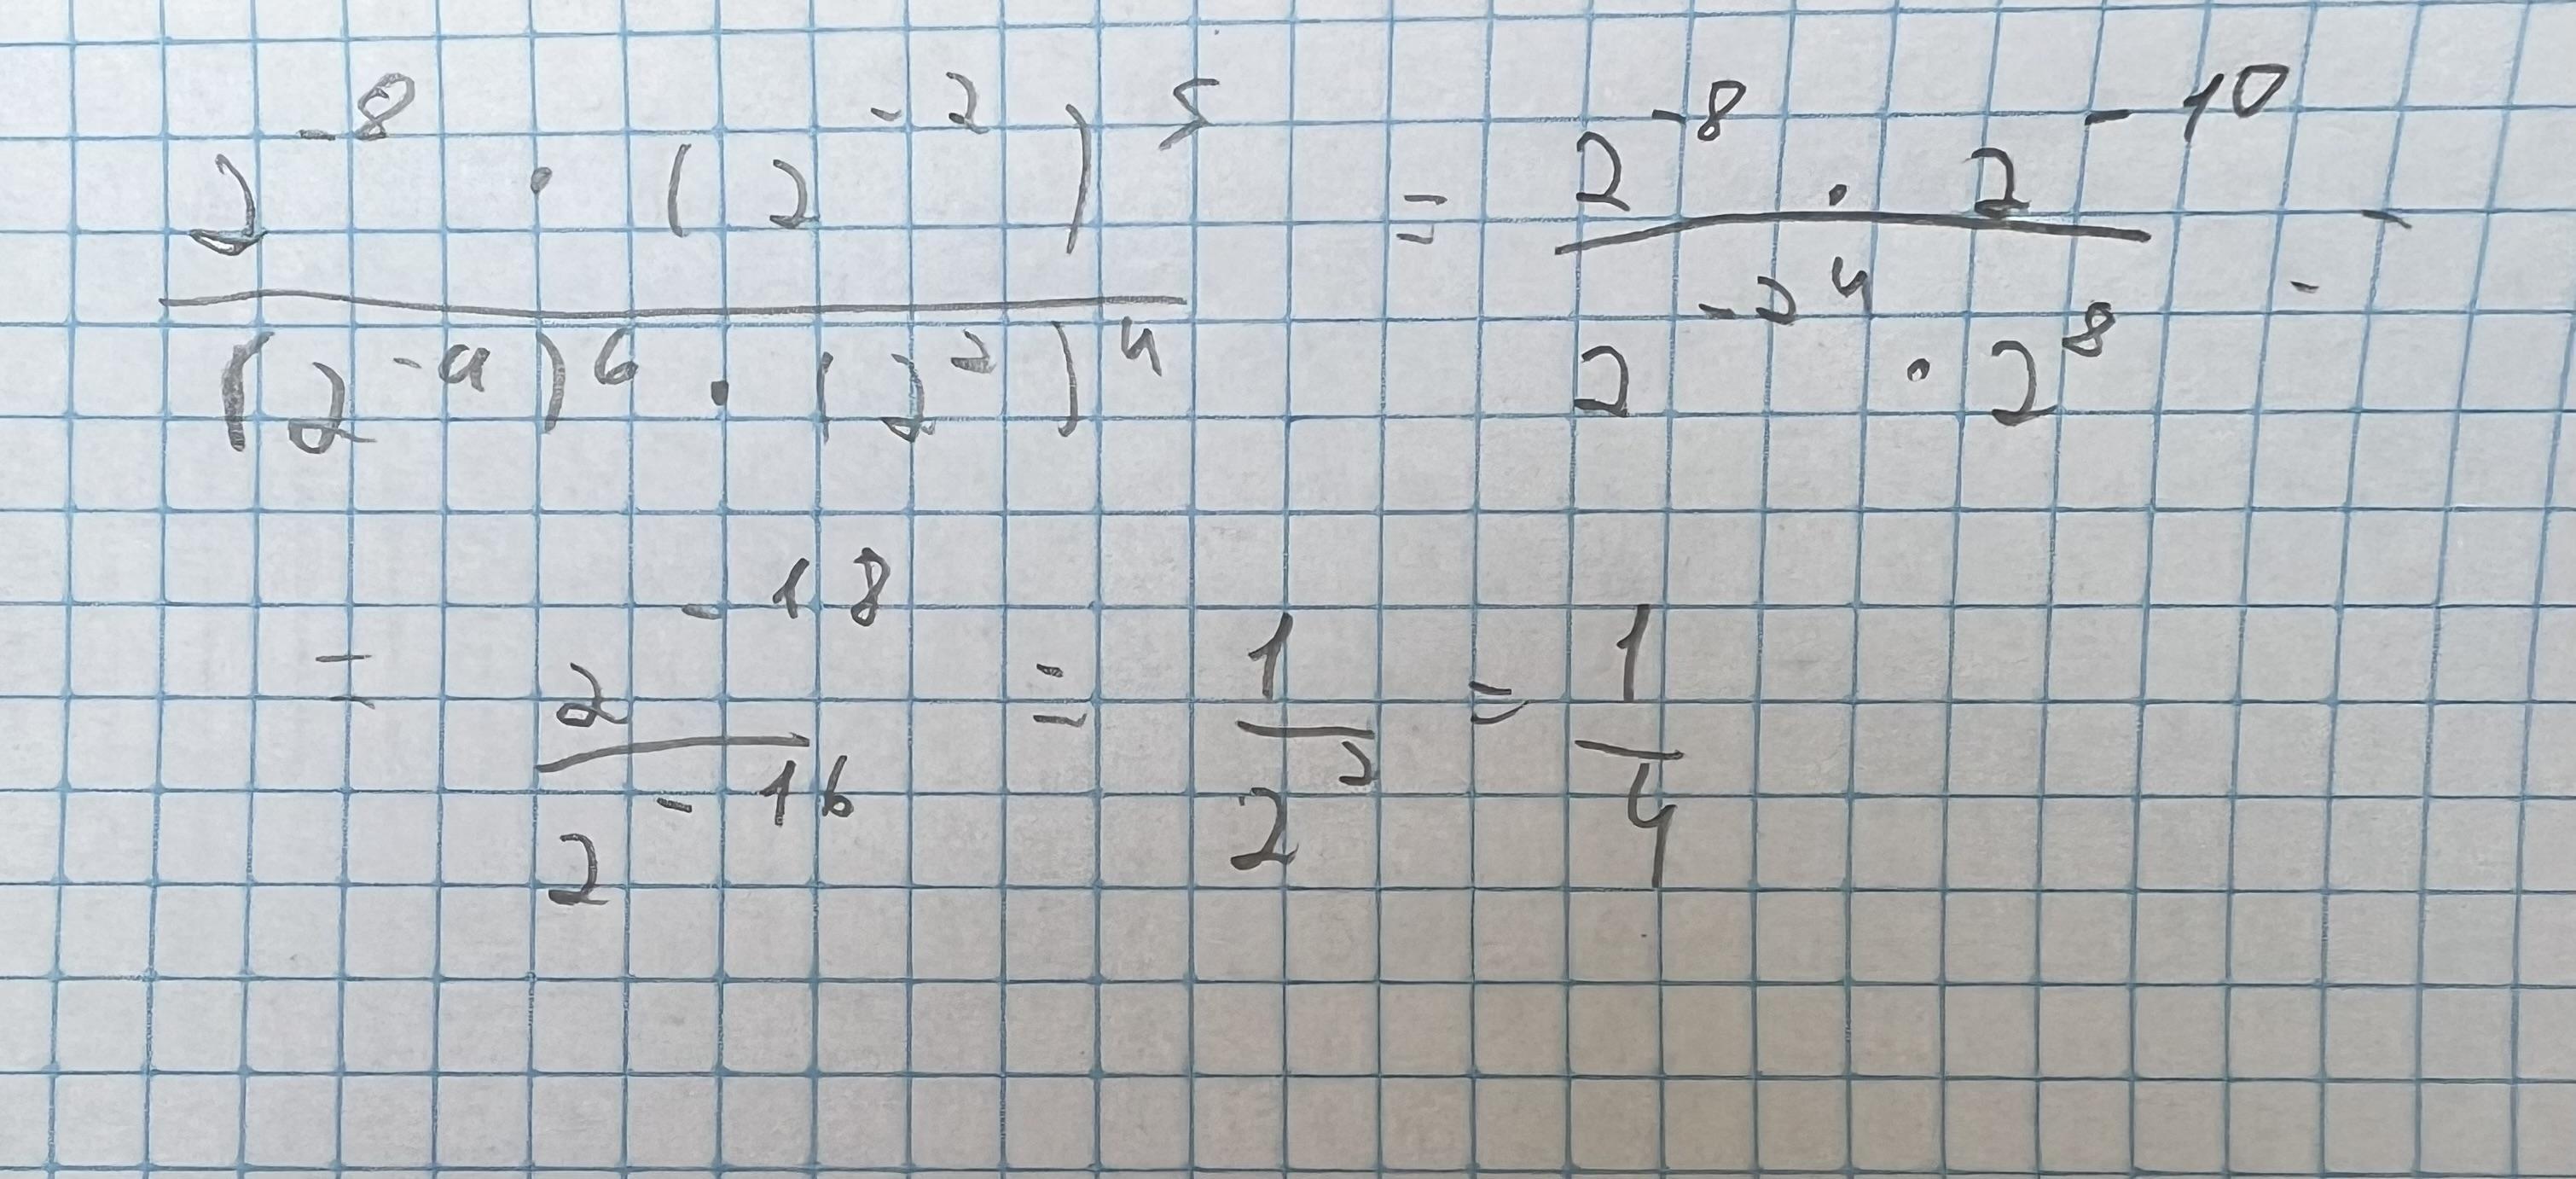 2^{-8} · (2^{-2})^5 / (2^{-4})^6 · (2^2)^4 = 2^{-8} · 2^{-10} / 2^{-24} · 2^8 =
= 2^{-18} / 2^{-16} = 1 / 2^2 = 1 / 4